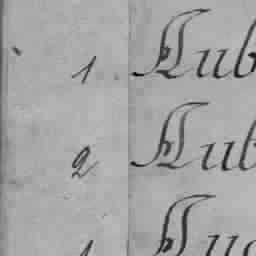 1 Aub
2 Aub
1